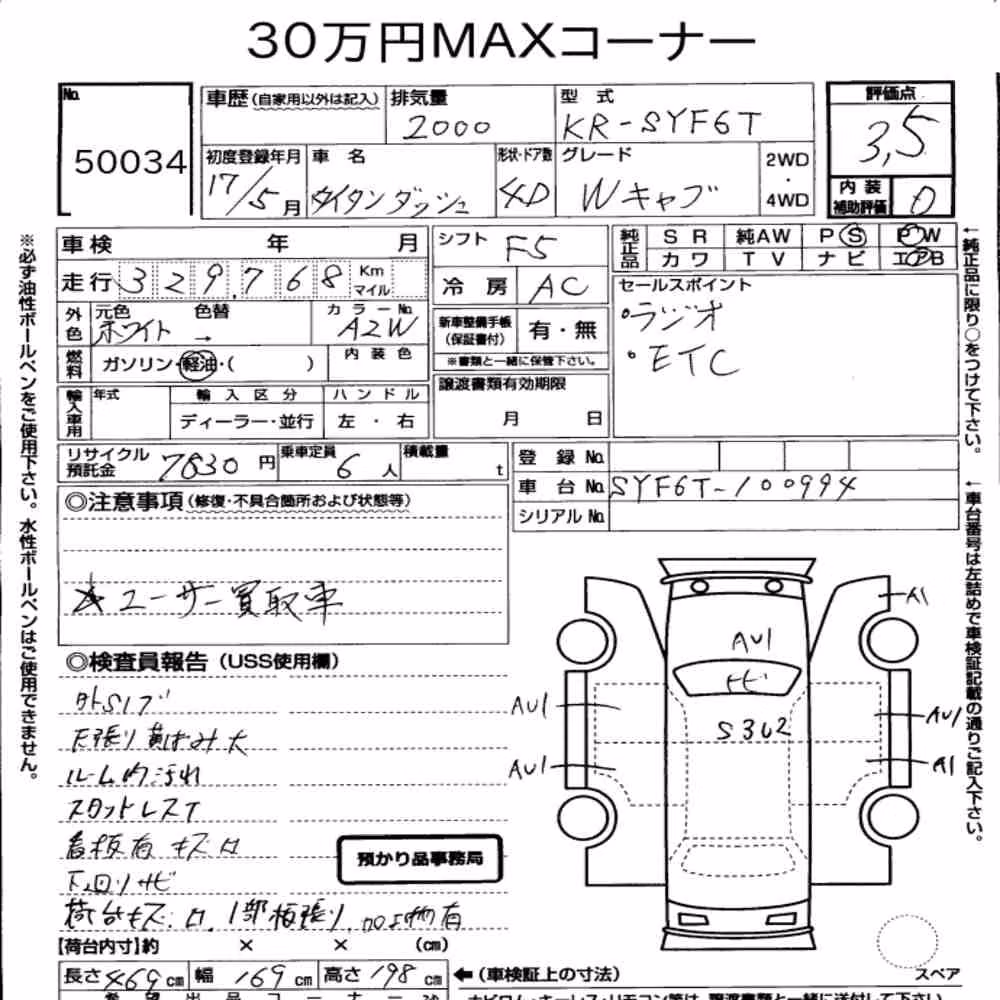 30万円MAXコーナー
No. 50034
車歴(自家用以外は記入) 排気量 2000 型式 KR-SYF6T 評価点 3,5
初度登録年月 17/5月 車名 タイタンダッシュ 形状・ドア数 4D グレード Wキャブ 2WD・4WD 内装補助評価 D
車検 年 月 シフト F5 純正品 SR 純AW PS PW
カワ TV ナビ エアB
走行 329,768 Km マイル 冷房 AC
セールスポイント
・ラジオ
・ETC
外色 元色 ホワイト 色替 → カラーNo. A2W
新車整備手帳(保証書付) 有・無
※書類と一緒に保管下さい。
燃料 ガソリン・軽油・( ) 内装色
譲渡書類有効期限
月 日
輸入車用 年式 輸入区分 ハンドル
ディーラー・並行 左・右
リサイクル預託金 7830円 乗車定員 6人 積載量 t
登録No.
車台No. SYF6T-100994
シリアルNo.
◎注意事項(修復・不具合箇所および状態等)
☆ユーザー買取車
◎検査員報告(USS使用欄)
外SIブ
天張り黄ばみ大
ルーム内汚れ
スタットレスT
看板有 キズ凹
下回りサビ
荷台キズ凹、1部板張り、加工物有
預かり品事務局
【荷台内寸】約 × × (cm)
長さ469cm 幅169cm 高さ198cm ←(車検証上の寸法)
A1
AU1
トビ
S3U2
AU1
AU1
AU1
A1
スペア
※必ず油性ボールペンをご使用下さい。水性ボールペンはご使用できません。
←純正品に限り○をつけて下さい。
←車台番号は左詰めで車検証記載の通りご記入下さい。